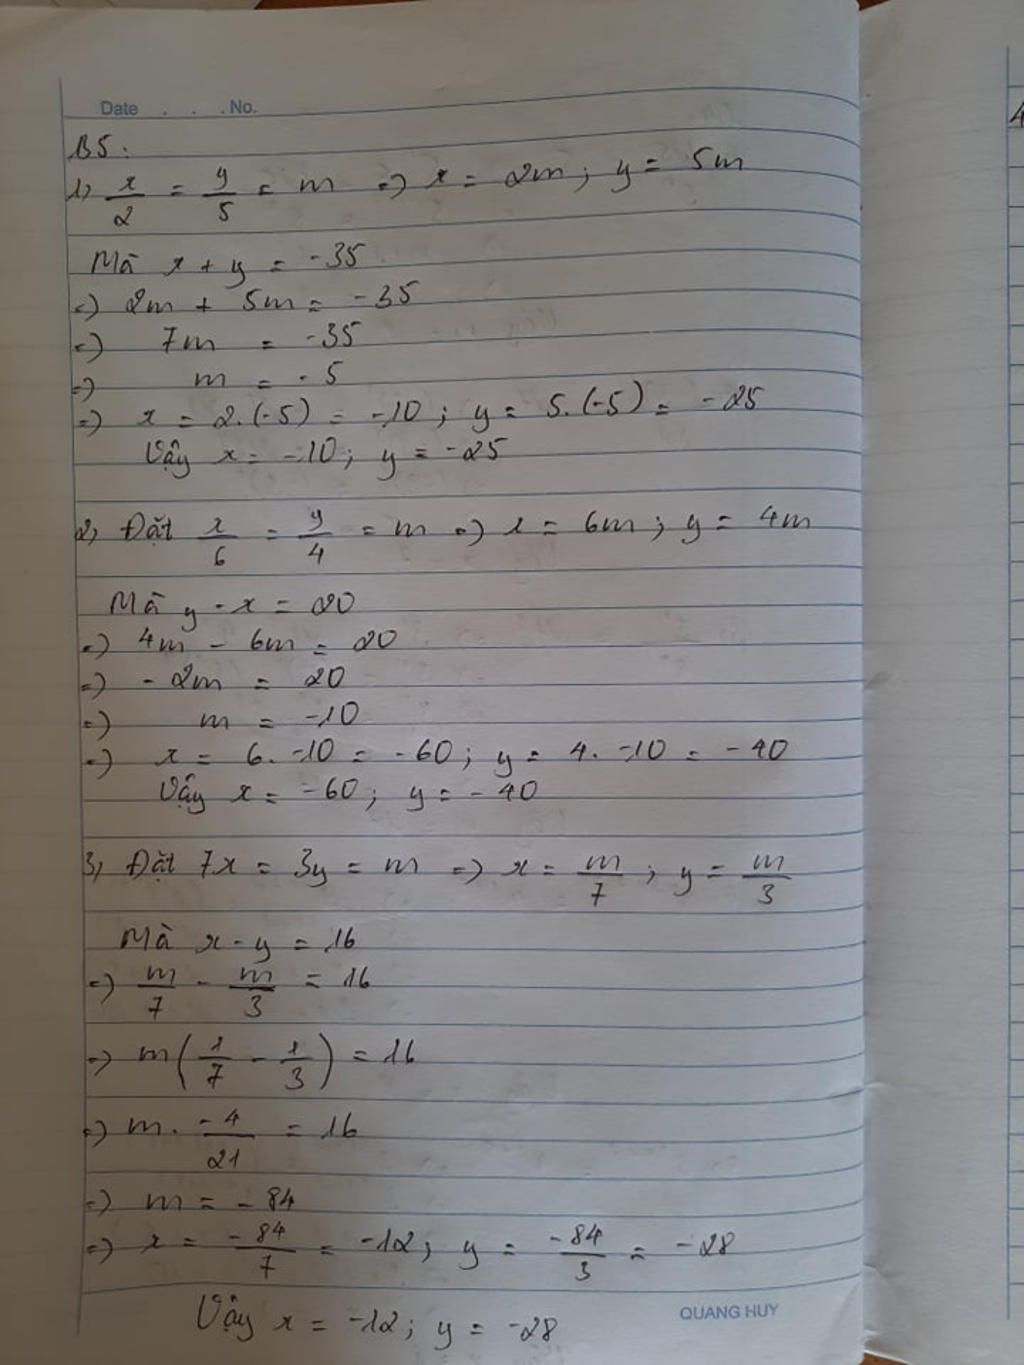 Date . . . No.
B5:
1, x/2 = y/5 = m => x = 2m; y = 5m
Mà x + y = -35
=> 2m + 5m = -35
=> 7m = -35
=> m = -5
=> x = 2.(-5) = -10; y = 5.(-5) = -25
Vậy x = -10; y = -25
2, Đặt x/6 = y/4 = m => x = 6m; y = 4m
Mà y - x = 20
=> 4m - 6m = 20
=> -2m = 20
=> m = -10
=> x = 6. -10 = -60; y = 4. -10 = -40
Vậy x = -60; y = -40
3, Đặt 7x = 3y = m => x = m/7; y = m/3
Mà x - y = 16
=> m/7 - m/3 = 16
=> m(1/7 - 1/3) = 16
=> m. -4/21 = 16
=> m = -84
=> x = -84/7 = -12; y = -84/3 = -28
Vậy x = -12; y = -28
QUANG HUY